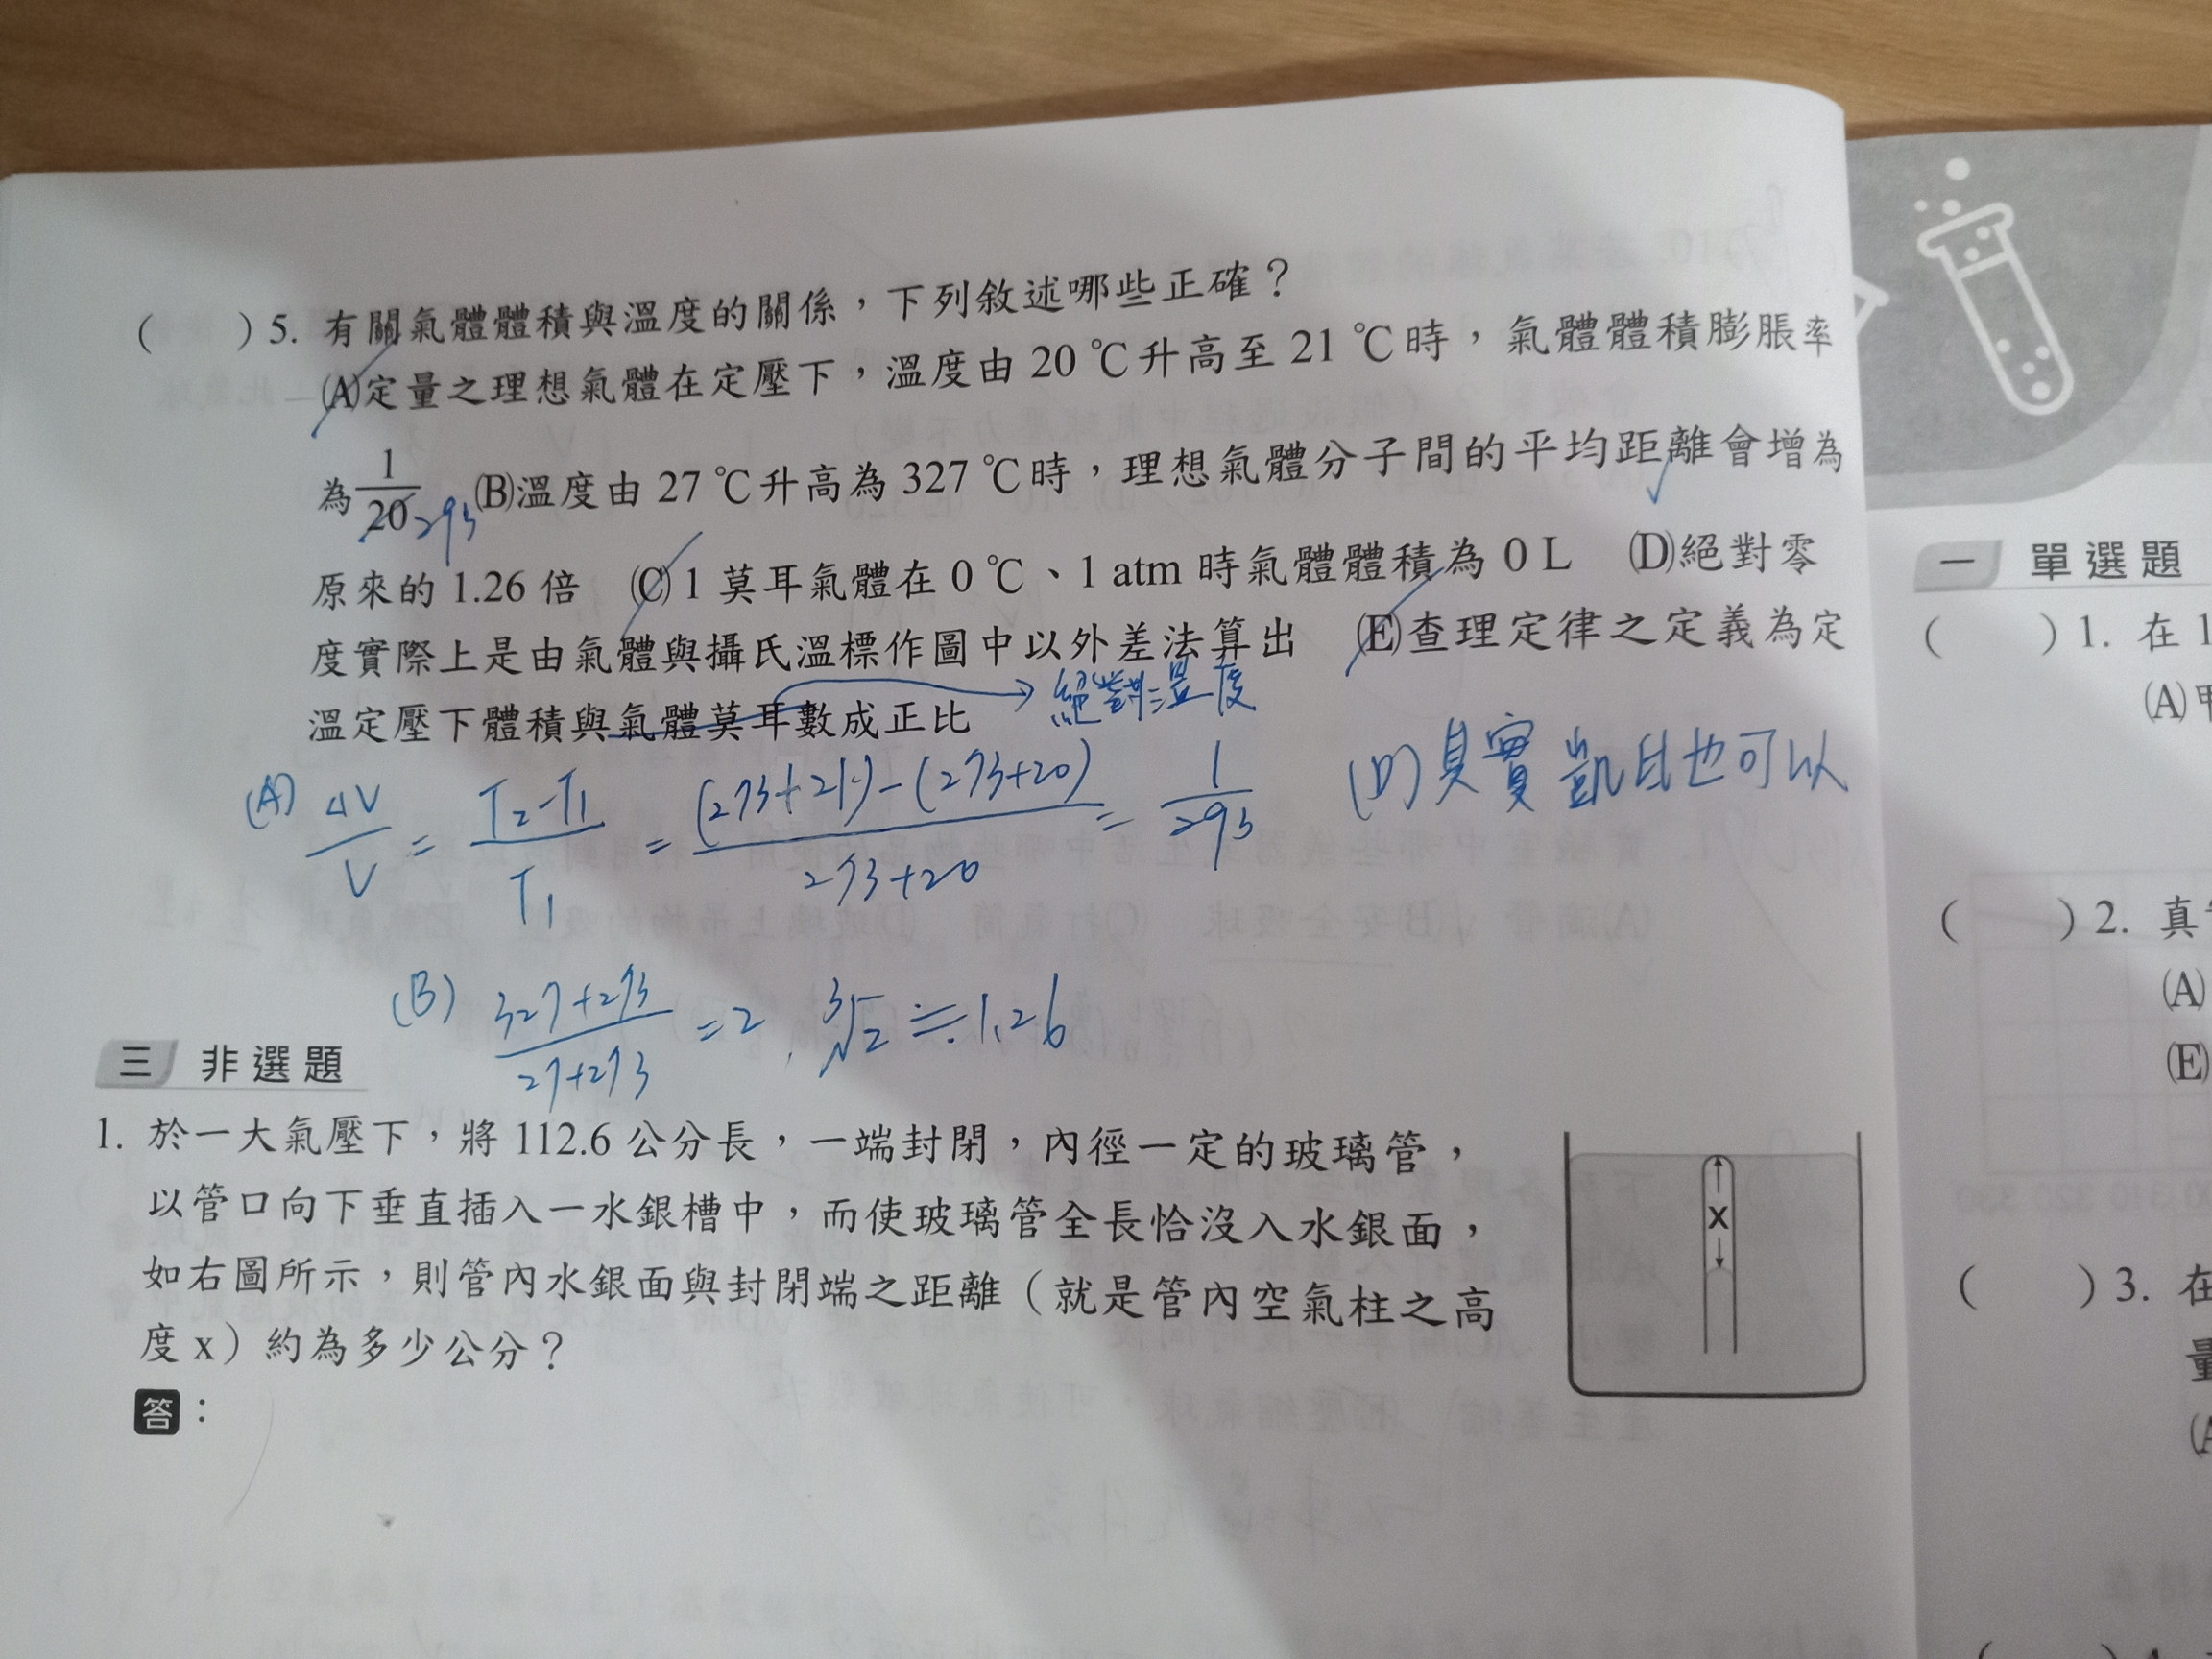 ( ) 5. 有關氣體體積與溫度的關係，下列敘述哪些正確？
(A)定量之理想氣體在定壓下，溫度由 20 ℃升高至 21 ℃時，氣體體積膨脹率
為 1/20 293 (B)溫度由 27 ℃升高為 327 ℃時，理想氣體分子間的平均距離會增為
原來的 1.26 倍 (C) 1 莫耳氣體在 0 ℃、1 atm 時氣體體積為 0 L (D)絕對零
度實際上是由氣體與攝氏溫標作圖中以外差法算出 (E)查理定律之定義為定
溫定壓下體積與氣體莫耳數成正比 → 絕對溫度
(A) ΔV/V = (T₂-T₁)/T₁ = ((273+21)-(273+20))/(273+20) = 1/293 (D) 其實凱氏也可以
(B) (327+273)/(27+273) = 2, ³√2 ≒ 1.26
三 非選題
1. 於一大氣壓下，將 112.6 公分長，一端封閉，內徑一定的玻璃管，
以管口向下垂直插入一水銀槽中，而使玻璃管全長恰沒入水銀面，
如右圖所示，則管內水銀面與封閉端之距離（就是管內空氣柱之高
度 x）約為多少公分？
答：
x
一 單選題
( ) 1. 在 1
(A) 甲
( ) 2. 真
(A)
(E)
( ) 3. 在
量
(A